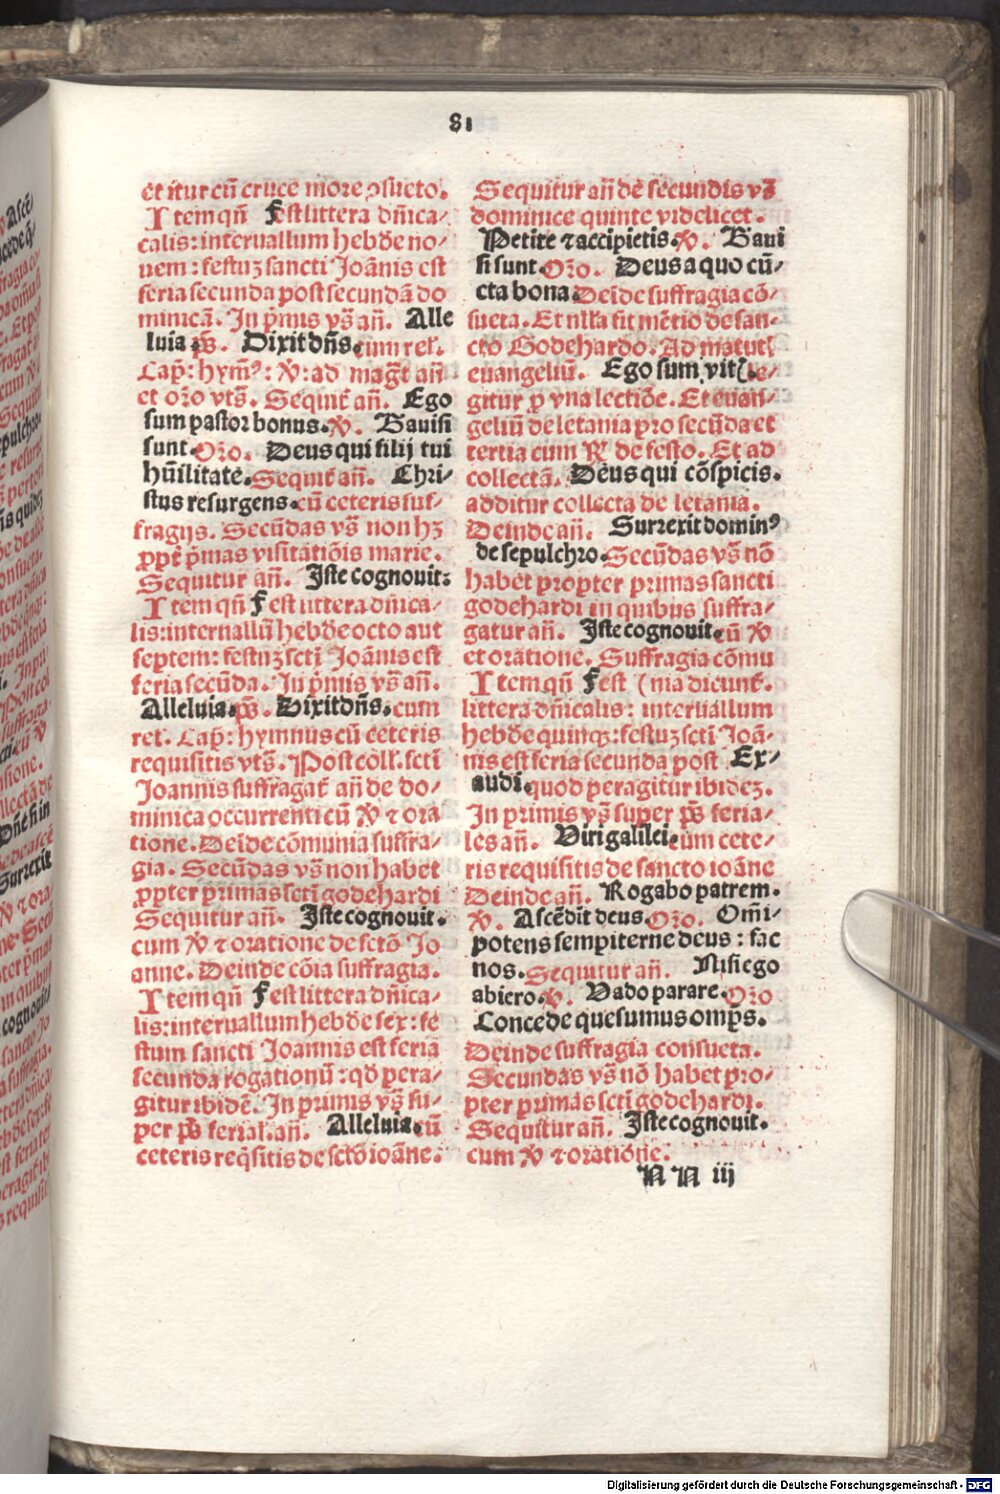 81
et itur cū cruce more ↄsueto.
Item qn̄ F est littera dn̄ica⸗
calis: interuallum hebde no⸗
uem: festuꝫ sancti Joānis est
feria secunda post secundā do
minicā. In p̄mis vs̄ an̄. Alle
luia. ps̄. Dixit dn̄s. cum rel.
Cap̄: hym̄⁹: ꝟ: ad maḡt an̄
et oro vts̄. Sequit̄ an̄. Ego
sum pastor bonus. ꝟ. Gauisi
sunt. Oro. Deus qui filij tui
hūilitate. Sequit̄ an̄. Chri⸗
stus resurgens. cū ceteris suf⸗
fragijs. Secūdas vs̄ non hꝫ
ꝓpt̄ p̄mas visitatiōis marie.
Sequitur an̄. Iste cognouit:
Item qn̄ F est littera dn̄ica⸗
lis: interuallū hebde octo aut
septem: festuꝫ scti Joānis est
feria secūda. In p̄mis vs̄ an̄.
Alleluia. ps̄. Dixit dn̄s. cum
rel. Cap̄: hymnus cū ceteris
requisitis vts̄. Post coll. scti
Joannis suffragat̄ an̄ de do⸗
minica occurrenti cū ꝟ ⁊ ora
tione. Deīde cōmunia suffra⸗
gia. Secūdas vs̄ non habet
ꝓpter primas scti godehardi
Sequitur an̄. Iste cognouit.
cum ꝟ ⁊ oratione de sctō Jo
anne. Deinde cōia suffragia.
Item qn̄ F est littera dn̄ica⸗
lis: interuallum hebde sex: fe
stum sancti Joannis est feria
secunda rogationū: qd̄ pera⸗
gitur ibidē. In primis vs̄ su⸗
per ps̄ ferial. an̄. Alleluia. cū
ceteris req̄sitis de sctō ioāne.
Sequitur an̄ de secundis vs̄
dominice quinte videlicet.
Petite ⁊ accipietis. ꝟ. Gaui
si sunt. Oro. Deus a quo cū⸗
cta bona. Deīde suffragia cō⸗
sueta. Et nlla fit mētio de san⸗
cto Godehardo. Ad matut̄
euangeliū. Ego sum vitꝭ. le⸗
gitur ꝓ vna lectiōe. Et euan⸗
geliū de letania pro secūda et
tertia cum ℟ de festo. Et ad
collectā. Deus qui cōspicis.
additur collecta de letania.
Deinde an̄. Surrexit domin⁹
de sepulchro. Secūdas vs̄ nō
habet propter primas sancti
godehardi in quibus suffra⸗
gatur an̄. Iste cognouit. cū ꝟ
et oratione. Suffragia cōmu
Item qn̄ F est (nia dicunt̄.
littera dn̄icalis: interuallum
hebde quinqꝫ: festuꝫ scti Joā⸗
nis est feria secunda post Ex⸗
audi. quod peragitur ibideꝫ.
In primis vs̄ super ps̄ feria⸗
les an̄. Viri galilei. cum cete⸗
ris requisitis de sancto ioāne
Deinde an̄. Rogabo patrem.
ꝟ. Ascēdit deus. Oro. Omi⸗
potens sempiterne deus: fac
nos. Sequitur an̄. Nisi ego
abiero. ꝟ. Vado parare. Oro
Concede quesumus omp̄s.
Deinde suffragia consueta.
Secundas vs̄ nō habet pro⸗
pter primas scti godehardi.
Sequitur an̄. Iste cognouit.
cum ꝟ ⁊ oratione.
N N iii
Digitalisierung gefördert durch die Deutsche Forschungsgemeinschaft - DFG